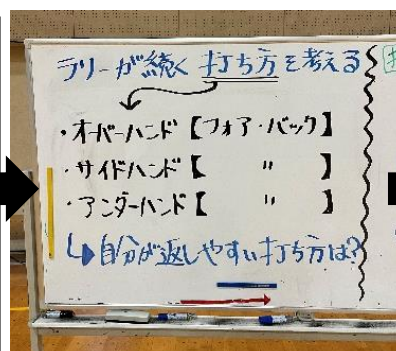 ラリーが続く打ち方を考える
・オーバーハンド【フォア・バック】
・サイドハンド【 〃 】
・アンダーハンド【 〃 】
↳自分が返しやすい打ち方は?